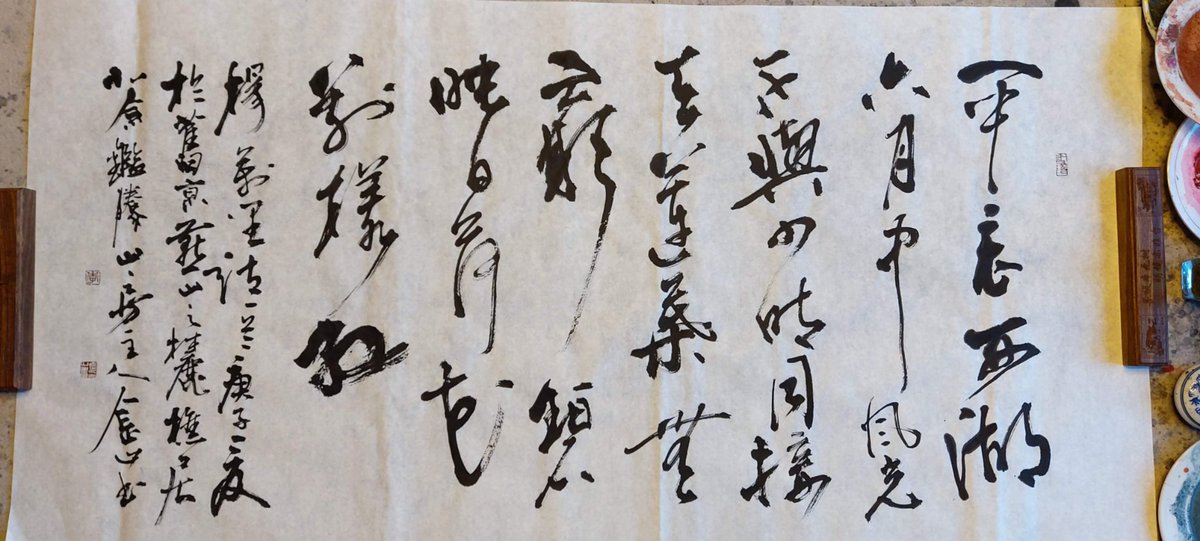 畢竟西湖
六月中風光
不與四時同接
天蓮葉無
窮碧
映日荷花
別樣紅
楊萬里詩一首庚子夏
於舊京燕山之麓樵居
山房主人書